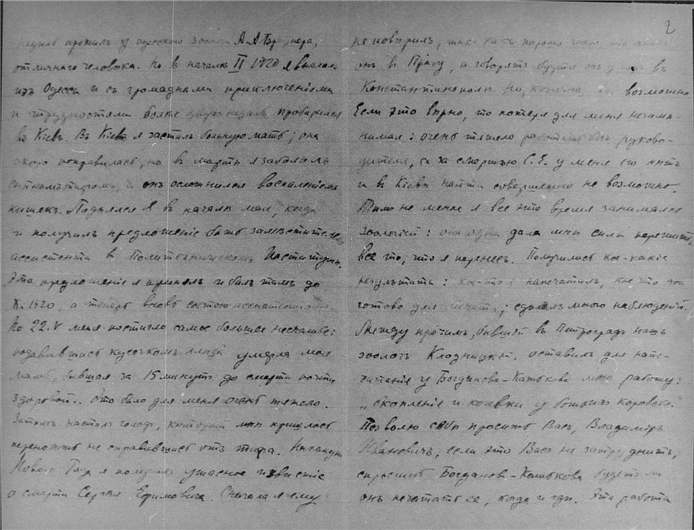 прожилъ у А. А. Браунера,
отличнаго человѣка. Но в началѣ II 1920 я выѣхалъ
изъ Одессы и съ громадными приключеніями
и трудностями болѣе пробирался
въ Кіевъ. Въ Кіевѣ я засталъ больную мать; она
скоро поправилась, но в мартѣ я заболѣлъ
и онъ осложнился воспаленіемъ
кишекъ. Поднялся я въ началѣ мая, когда
и получилъ предложеніе быть
ассистента в Политехническом Институтѣ.
Это предложеніе я принялъ и былъ тамъ до
X. 1920, а теперь вновь состою ассистентомъ.
Но 22.V меня постигло самое большое несчастье:
подавившись кусочкомъ умерла моя
мать, бывшая за 15 минутъ до смерти почти
здоровой. Это было для меня очень тяжело.
Затѣмъ насталъ голодъ, который мнѣ пришлось
переносить не оправившись отъ тифа. Наканунѣ
Новаго Года я получилъ ужасное извѣстіе
о смерти Сергѣя Ефимовича. Сначала я ему
2
не повѣрилъ, така какъ
онъ в Прагу, а говорятъ будто онъ умеръ в
Константинополѣ возможно.
Если это вѣрно, то потеря для меня
очень тяжело работать безъ руково-
дителя, а за смертью С. Е. у меня его нѣтъ
и в Кіевѣ найти совершенно не возможно.
Тѣмъ не менѣе я все это время занимался
зоологіей: она одна дала мнѣ силы пережить
все то, что я перенесъ. Получились кое-какіе
результаты: кое-что напечаталъ, кое что
готово для печати; сдѣлалъ много наблюденій.
Между прочимъ, бывшій в Петроградѣ нашъ
зоологъ оставилъ для напе-
чатанія у Богданова-Катькова мою работу:
„Скопленіе и кочевки у божьихъ коровокъ."
Позволю себѣ просить Васъ, Владиміръ
Ивановичъ, если это Васъ не затруднитъ,
спросить Богданова-Катькова будетъ ли
онъ печатать ее, когда и гдѣ. Эта работа